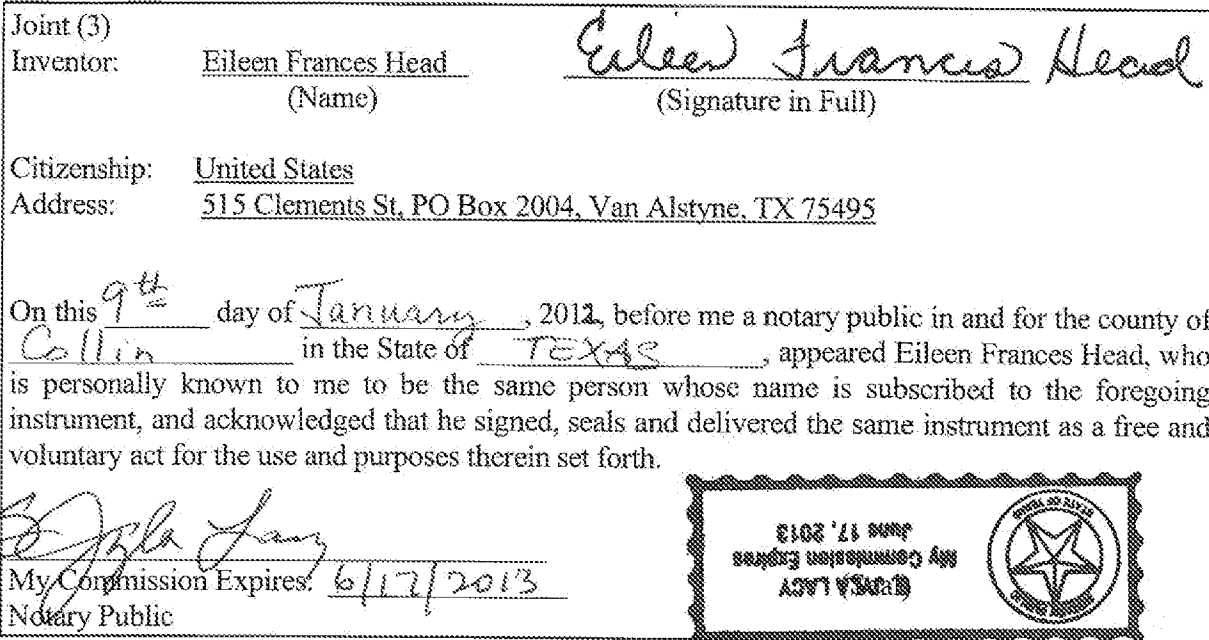 Joint (3)
Inventor: Eileen Frances Head Eileen Frances Head
(Name) (Signature in Full)
Citizenship: United States
Address: 515 Clements St, PO Box 2004, Van Alstyne, TX 75495
On this 9th day of January, 2012, before me a notary public in and for the county of
Collin in the State of TEXAS, appeared Eileen Frances Head, who
is personally known to me to be the same person whose name is subscribed to the foregoing
instrument, and acknowledged that he signed, seals and delivered the same instrument as a free and
voluntary act for the use and purposes therein set forth.
My Commission Expires: 6/17/2013
Notary Public
LACY
My Commission Expires
June 17, 2013
STATE OF TEXAS